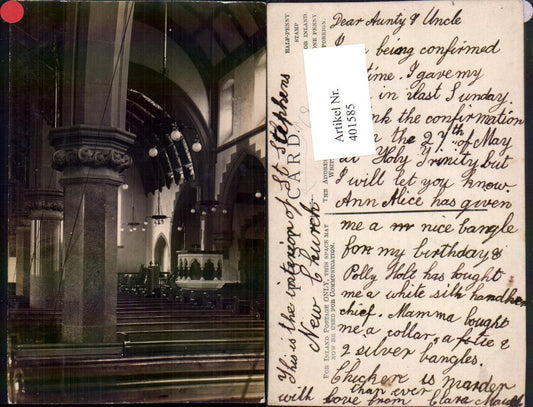 Dear Aunty & Uncle
being confirmed
time. I gave my
in last Sunday.
the confirmation
the 27th of May
at Holy Trinity but
I will let you know.
Ann Alice has given
me a nice bangle
for my birthday &
Polly Holt has bought
me a white silk handker
chief. Mamma bought
me a collar, a tie &
2 silver bangles.
Chicken is
than ever
with love from Clara
This is the interior of St Stephens
New Church.
CARD
HALF-PENNY
STAMP
OR INLAND
ONE PENNY
FOREIGN.
FOR INLAND POSTAGE ONLY, THIS SPACE MAY
NOW BE USED FOR COMMUNICATION.
THE ADDRESS
Artikel Nr.
401585